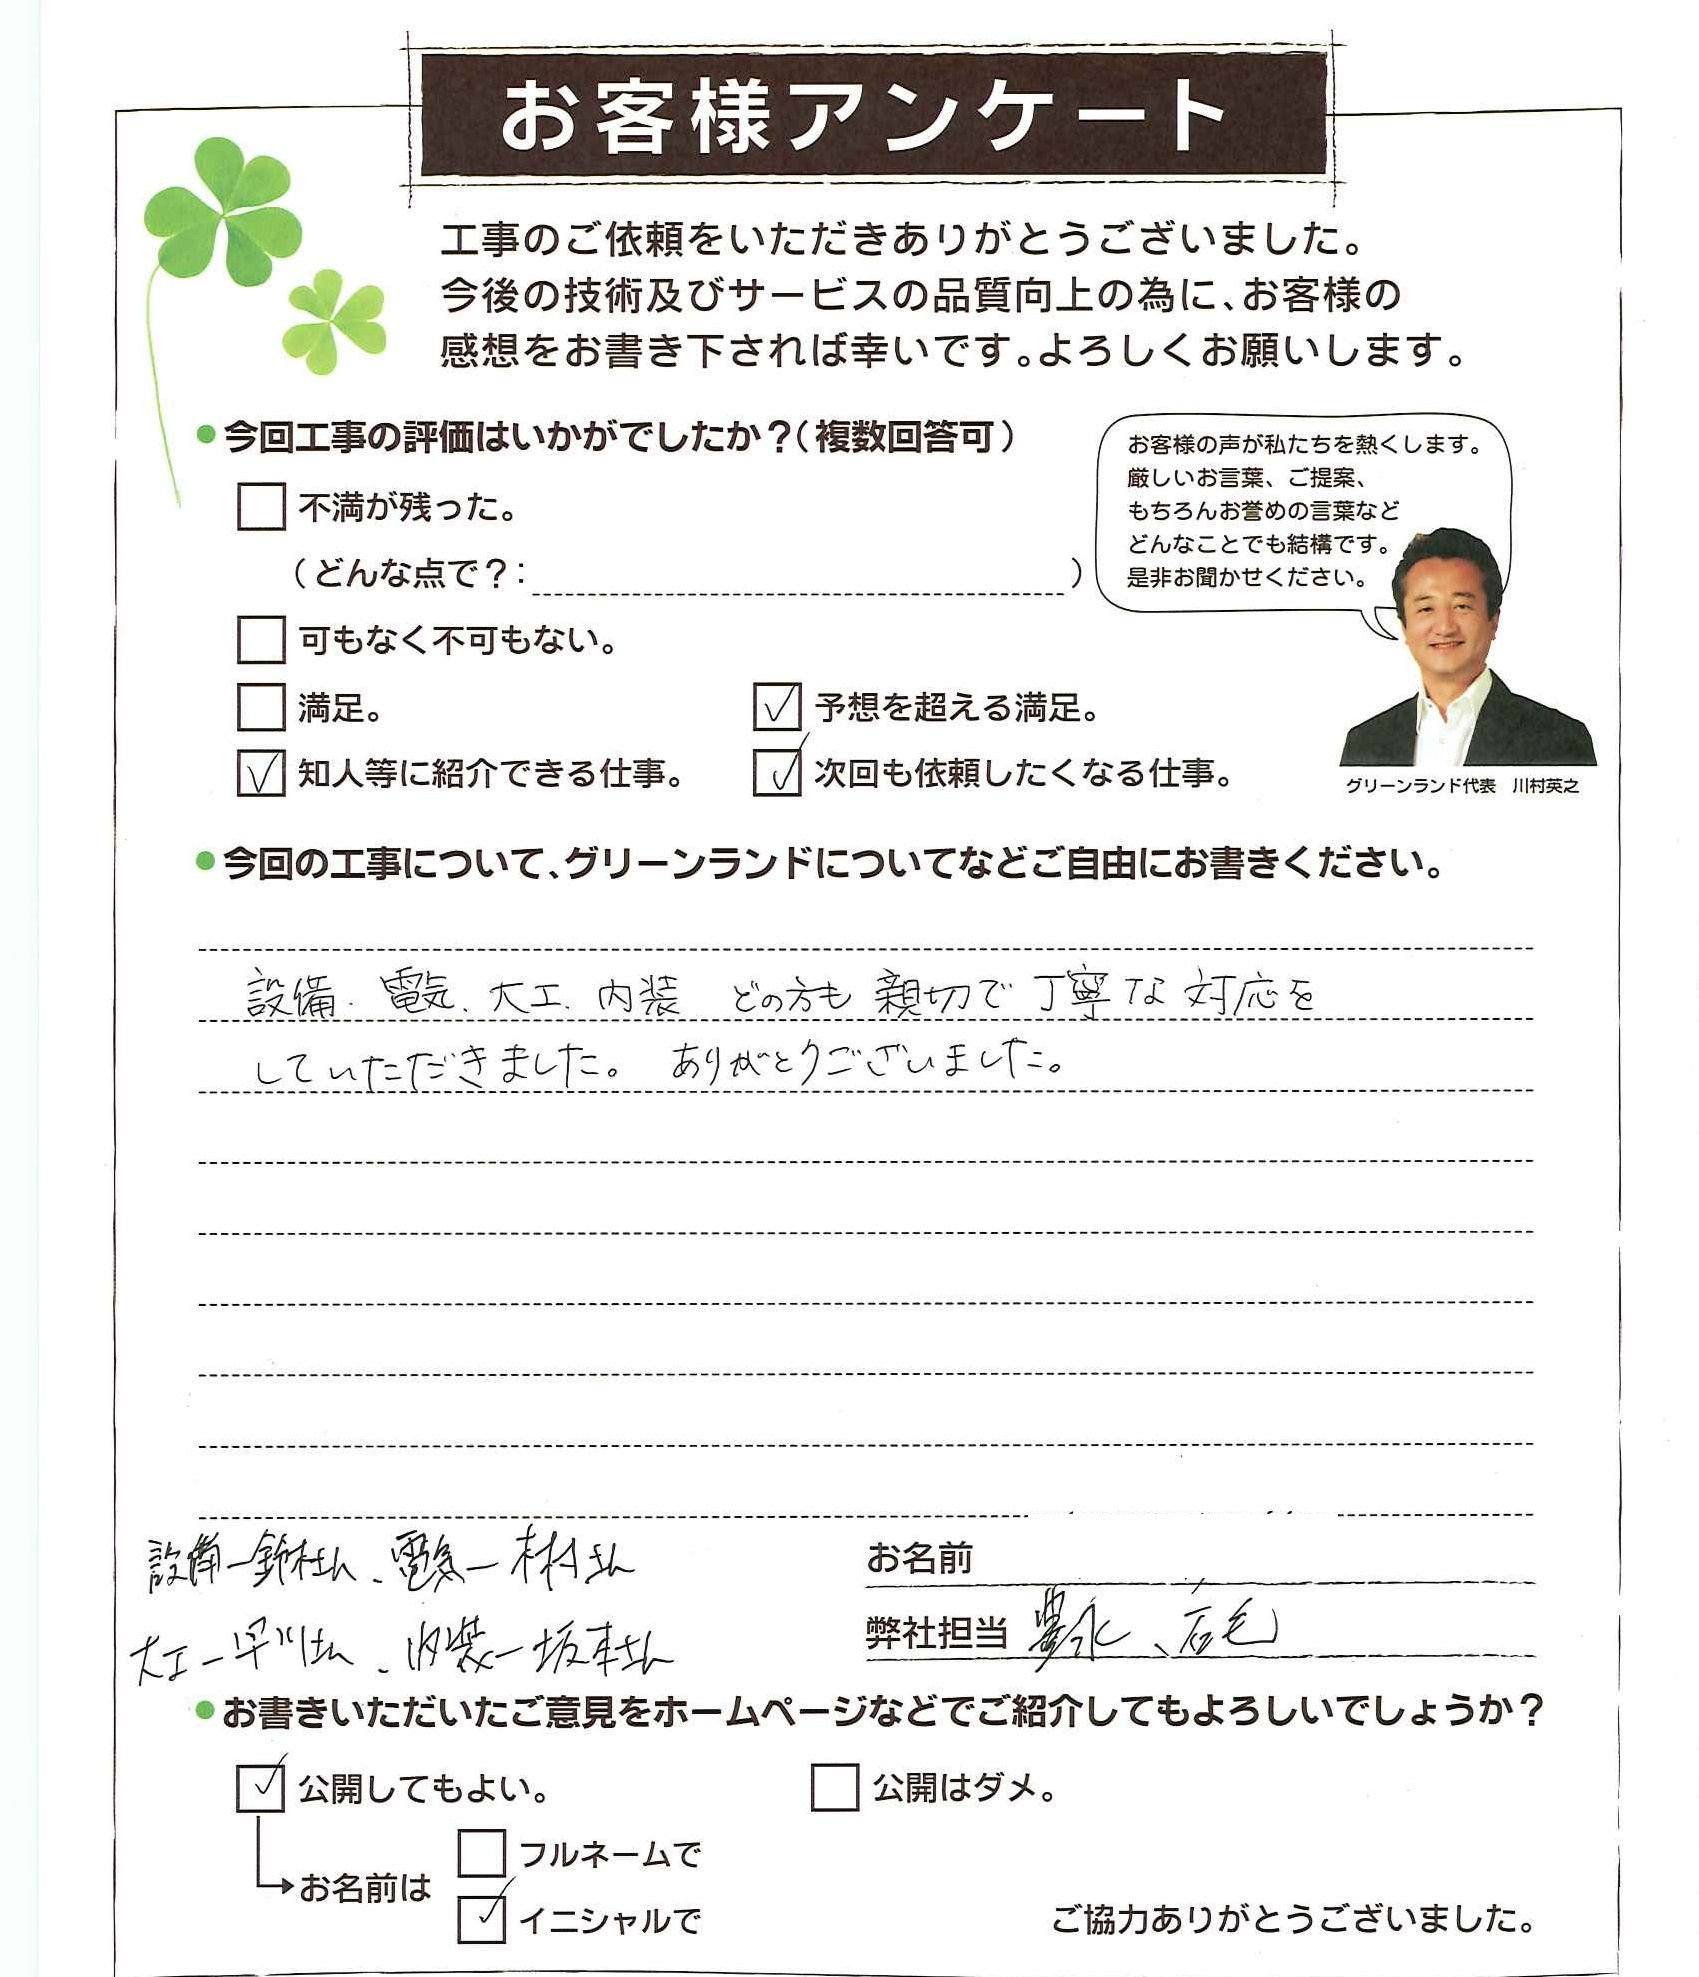 お客様アンケート
工事のご依頼をいただきありがとうございました。
今後の技術及びサービスの品質向上の為に、お客様の
感想をお書き下されば幸いです。よろしくお願いします。
●今回工事の評価はいかがでしたか？（複数回答可）
不満が残った。
（どんな点で？： ）
可もなく不可もない。
満足。
予想を超える満足。
知人等に紹介できる仕事。
次回も依頼したくなる仕事。
お客様の声が私たちを熱くします。
厳しいお言葉、ご提案、
もちろんお誉めの言葉など
どんなことでも結構です。
是非お聞かせください。
グリーンランド代表 川村英之
●今回の工事について、グリーンランドについてなどご自由にお書きください。
設備、電気、大工、内装 どの方も親切で丁寧な対応を
していただきました。 ありがとうございました。
設備ー鈴木さん、電気ー さん
大工ー早川さん、内装ー坂本さん
お名前
弊社担当 豊永、石毛
●お書きいただいたご意見をホームページなどでご紹介してもよろしいでしょうか？
公開してもよい。
公開はダメ。
お名前は
フルネームで
イニシャルで
ご協力ありがとうございました。